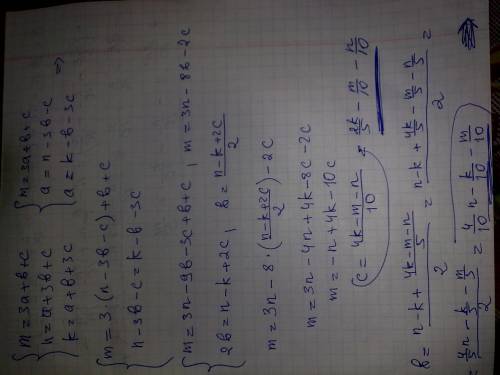 { m = 3a+b+c { m = 3a+b+c
{ n = a+3b+c { a = n-3b-c
{ k = a+b+3c { a = k-b-3c =>
{ m = 3·(n-3b-c)+b+c
{ n-3b-c = k-b-3c
{ m = 3n-9b-3c+b+c ; m = 3n-8b-2c
{ 2b = n-k+2c ; b = (n-k+2c)/2
m = 3n-8·((n-k+2c)/2)-2c
m = 3n-4n+4k-8c-2c
m = -n+4k-10c
c = (4k-m-n)/10 = 2k/5 - m/10 - n/10
b = (n-k+(4k-m-n)/5)/2 = (n-k+4k/5-m/5-n/5)/2 =
= (4/5n - k/5 - m/5)/2 = 4/10 n - k/10 - m/10